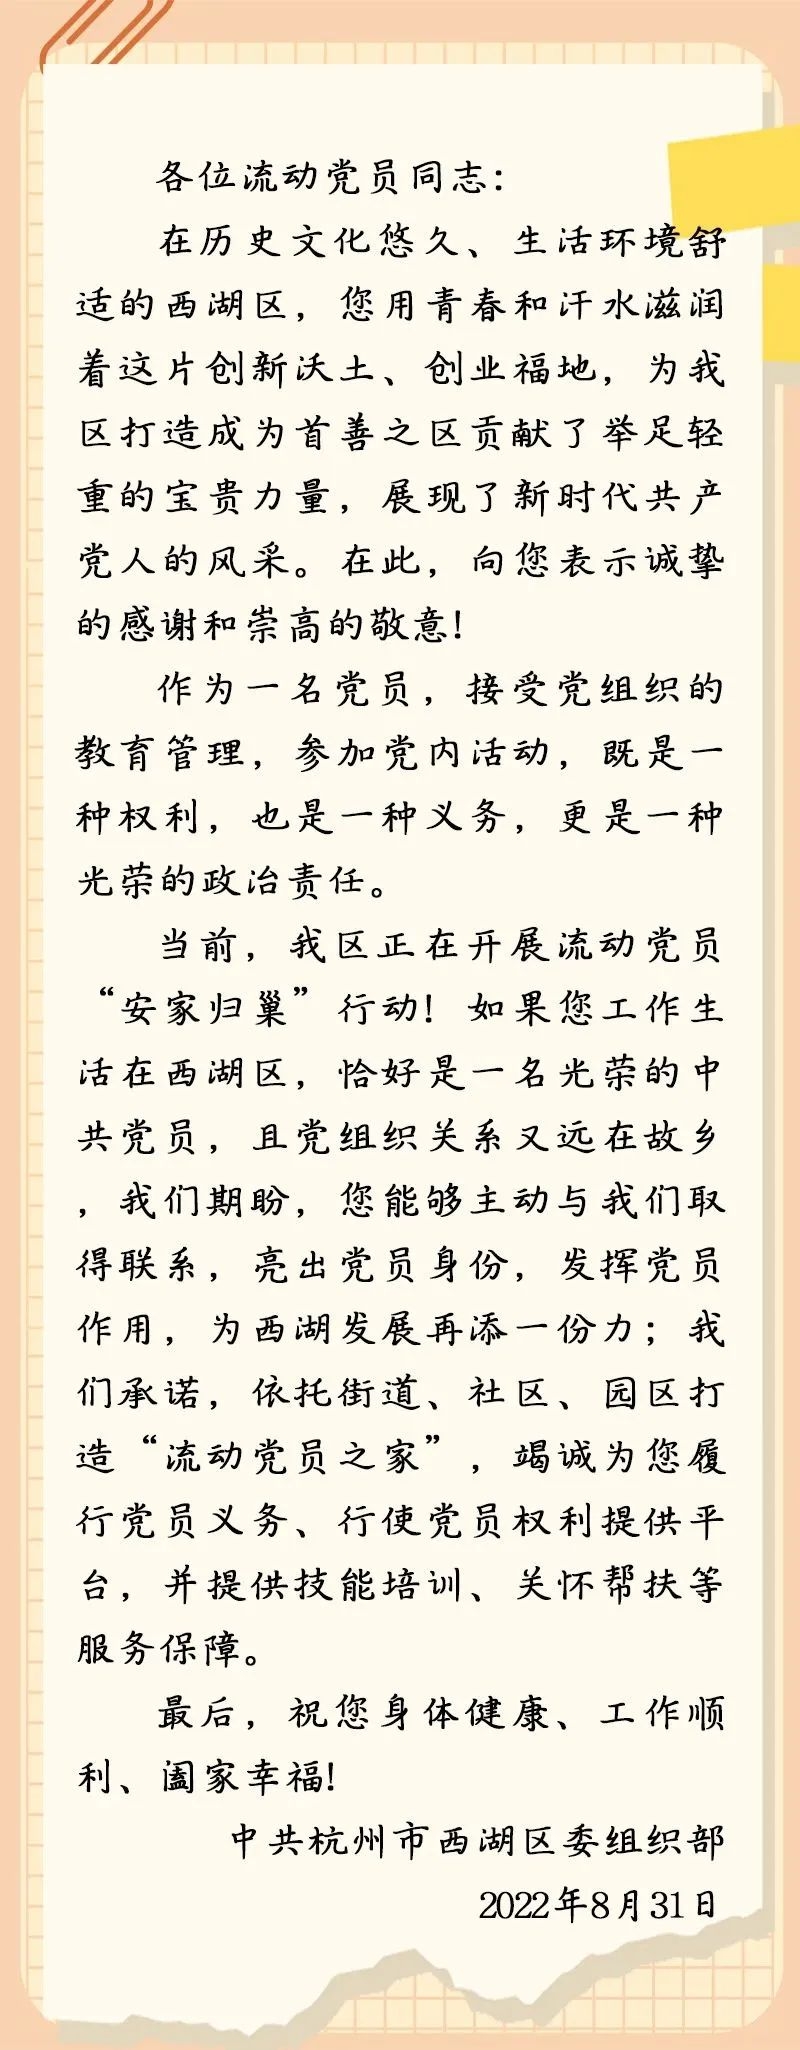 各位流动党员同志：
在历史文化悠久、生活环境舒
适的西湖区，您用青春和汗水滋润
着这片创新沃土、创业福地，为我
区打造成为首善之区贡献了举足轻
重的宝贵力量，展现了新时代共产
党人的风采。在此，向您表示诚挚
的感谢和崇高的敬意！
作为一名党员，接受党组织的
教育管理，参加党内活动，既是一
种权利，也是一种义务，更是一种
光荣的政治责任。
当前，我区正在开展流动党员
“安家归巢”行动！如果您工作生
活在西湖区，恰好是一名光荣的中
共党员，且党组织关系又远在故乡
，我们期盼，您能够主动与我们取
得联系，亮出党员身份，发挥党员
作用，为西湖发展再添一份力；我
们承诺，依托街道、社区、园区打
造“流动党员之家”，竭诚为您履
行党员义务、行使党员权利提供平
台，并提供技能培训、关怀帮扶等
服务保障。
最后，祝您身体健康、工作顺
利、阖家幸福！
中共杭州市西湖区委组织部
2022年8月31日